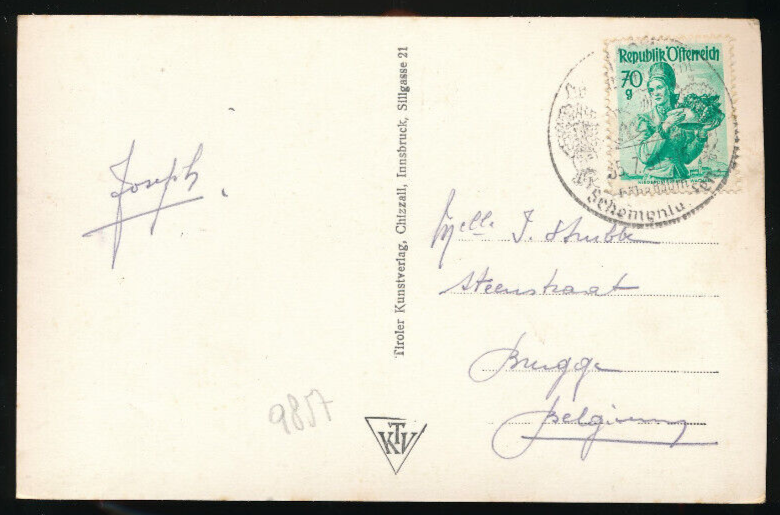 Joseph.
Tiroler Kunstverlag, Chizzali, Innsbruck, Sillgasse 21
Republik Österreich
70
g
Mjelle J. Strubbe
Steenstraat
Brugge
Belgium
9857
KTV